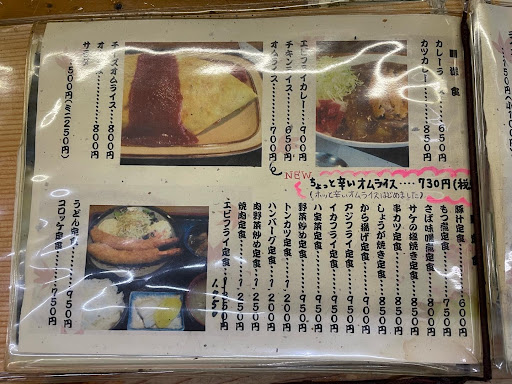 洋食
カレーライス……650円
カツカレー……850円
エビフライカレー……900円
チキンライス……650円
オムライス……700円
チーズオムライス……800円
オムハヤシ……800円
サラダ……500円(ミニ250円)
NEW
ちょっと辛いオムライス…730円(税
(ホッと辛いオムライスはじめました)
豚汁定食……600円
もつ煮定食……750円
さば味噌煮定食……850円
サケの塩焼き定食……850円
串カツ定食……850円
しょうが焼き定食……850円
から揚げ定食……900円
アジフライ定食……950円
イカフライ定食……950円
八宝菜定食……950円
野菜炒め定食……950円
トンカツ定食……1200円
ハンバーグ定食……1200円
肉野菜炒め定食…1200円
焼肉定食……1250円
エビフライ定食
1.050
うどん定食……950円
コロッケ定食……750円